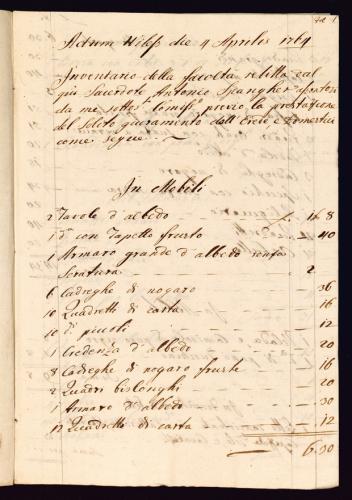 Actum die 4 Aprilis 1764
Inventario della facoltà relitta dal
qm Sacerdote Antonio Spangher
da me previo la prestazione
del solito giuramento dall' Erede e Domestici
come segue
In Mobili
2 Tavole d'albedo 1 8
1 dº con Tapetto frusto 40
1 Armaro grande d'albedo senza
Seratura 2
6 Cadreghe di nogaro 36
10 Quadretti di carta 16
10 di picoli 12
1 Credenza d'albedo 20
8 Cadreghe di nogaro fruste 16
2 Quadri bislonghi 20
1 Armaro d'albedo 30
12 Quadretti di carta 12
6:30